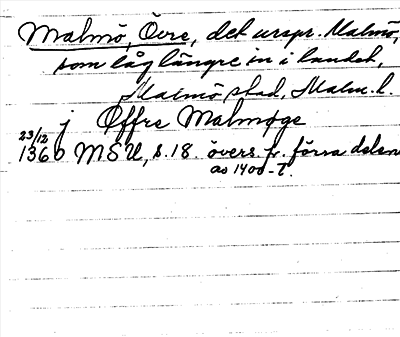 Malmö, Övre, det urspr. Malmö,
som låg längre in i landet,
Malmö stad, Malm. l.
23/12 j Öffre Malmøge
1360 MSU, s. 18. övers. fr. förra delen
av 1400-t.